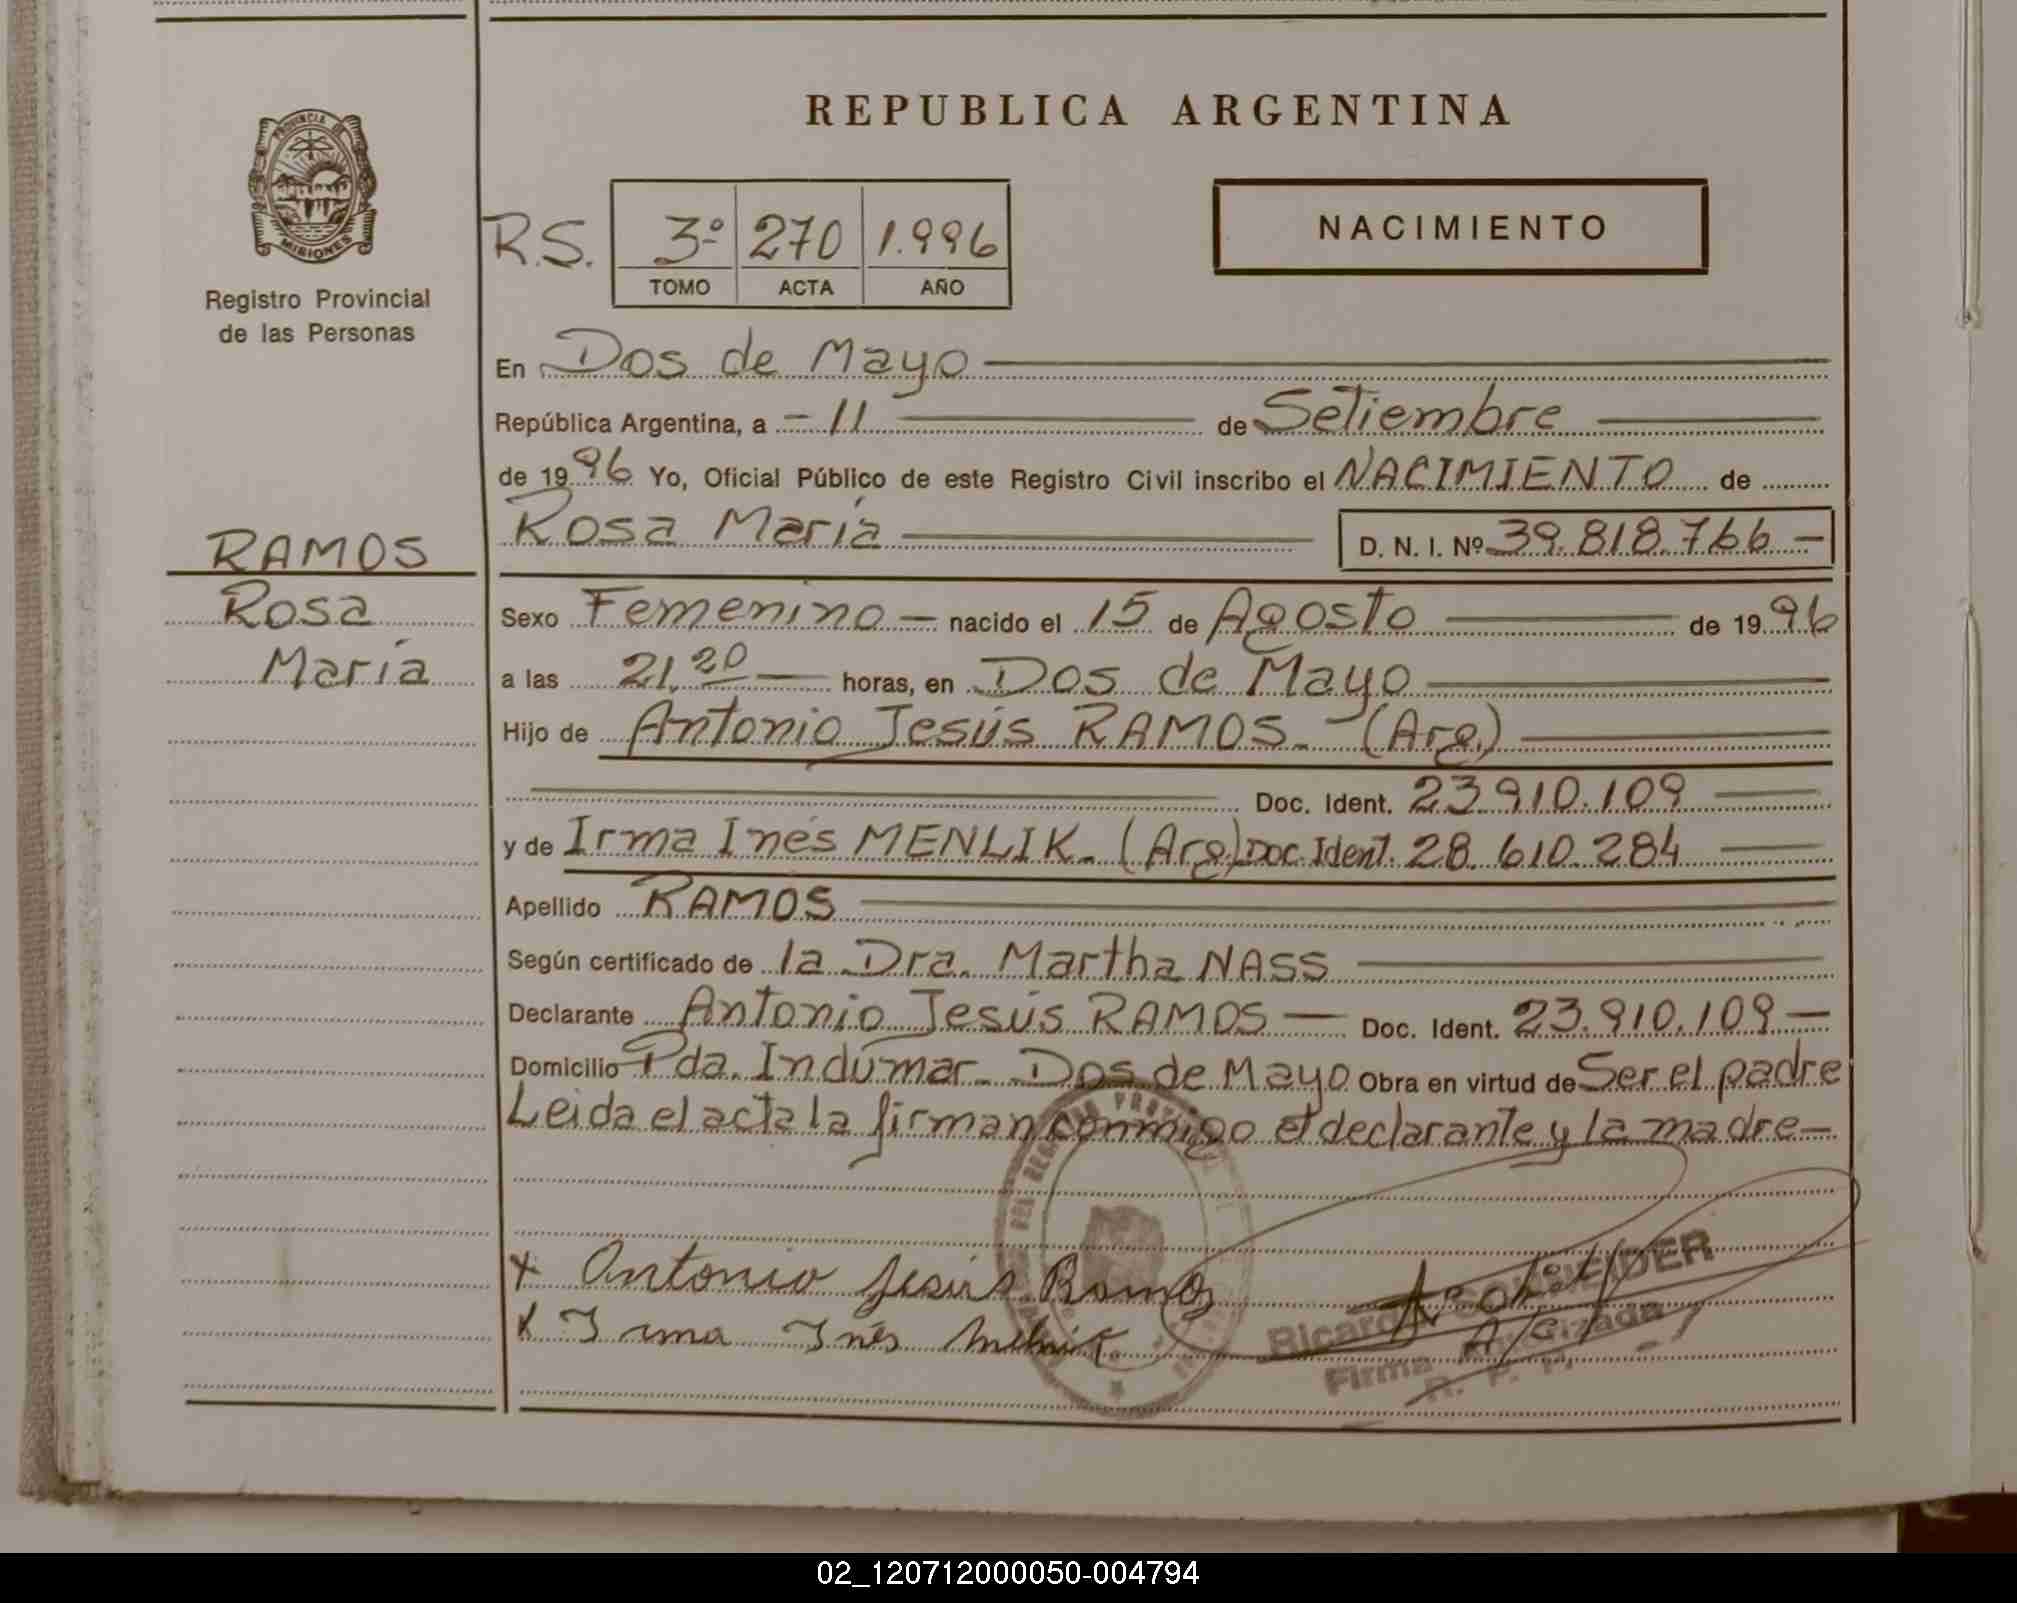 PROVINCIA DE
MISIONES
Registro Provincial
de las Personas
REPUBLICA ARGENTINA
NACIMIENTO
R.S. 3º 270 1.996
TOMO ACTA AÑO
En Dos de Mayo
República Argentina, a - 11 de Setiembre
de 1996 Yo, Oficial Público de este Registro Civil inscribo el NACIMIENTO de
Rosa María D. N. I. Nº 39.818.766 -
RAMOS
Rosa
María
Sexo Femenino - nacido el 15 de Agosto de 1996
a las 21,20 horas, en Dos de Mayo
Hijo de Antonio Jesús RAMOS. (Arg.)
Doc. Ident. 23.910.109
y de Irma Inés MENLIK. (Arg) Doc. Ident. 28.610.284
Apellido RAMOS
Según certificado de la Dra. Martha NASS
Declarante Antonio Jesús RAMOS - Doc. Ident. 23.910.109 -
Domicilio Pda. Indumar. Dos de Mayo Obra en virtud de Ser el padre
Leida el acta la firman conmigo el declarante y la madre -
x Antonio Jesús Ramos
x Irma Inés
Ricardo
Firma Autorizada
R. P. P.
02_120712000050-004794